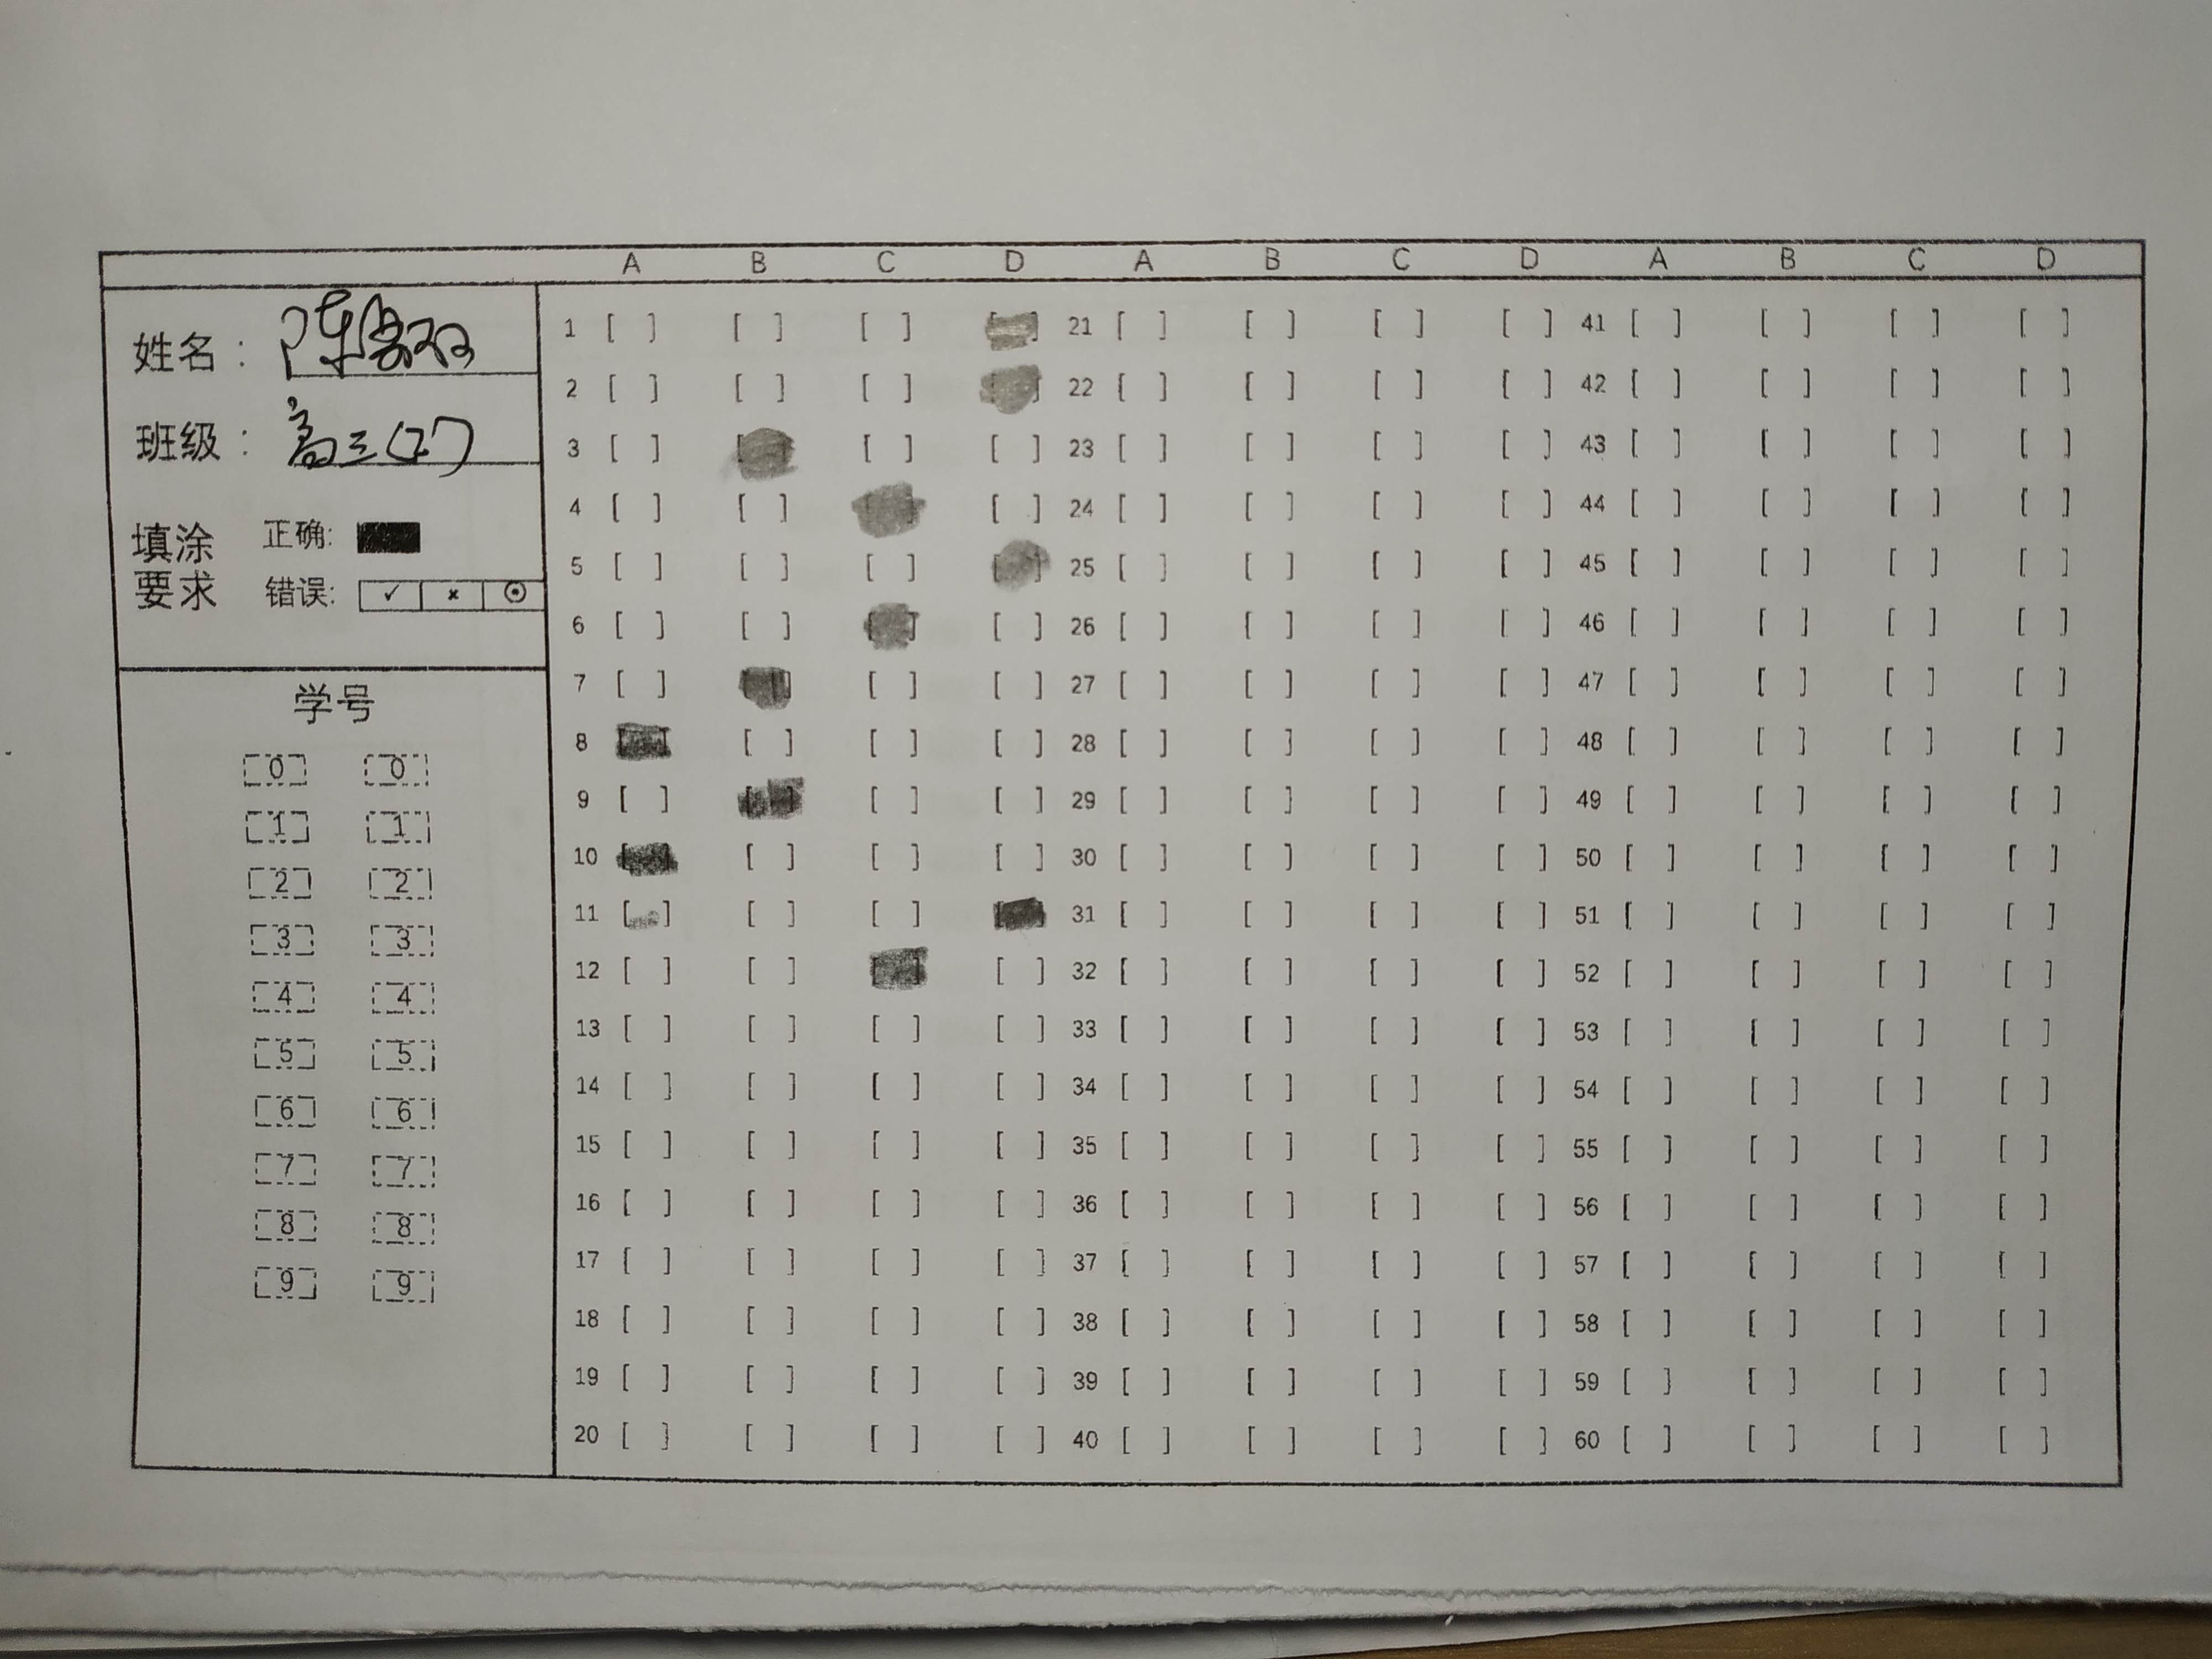 A B C D A B C D A B C D
姓名：陈
班级：高三(2)
填涂要求 正确:
错误: ✓ × ⊙
学号
0 0
1 1
2 2
3 3
4 4
5 5
6 6
7 7
8 8
9 9
1 [ ] [ ] [ ] [ ] 21 [ ] [ ] [ ] [ ] 41 [ ] [ ] [ ] [ ]
2 [ ] [ ] [ ] [ ] 22 [ ] [ ] [ ] [ ] 42 [ ] [ ] [ ] [ ]
3 [ ] [ ] [ ] [ ] 23 [ ] [ ] [ ] [ ] 43 [ ] [ ] [ ] [ ]
4 [ ] [ ] [ ] [ ] 24 [ ] [ ] [ ] [ ] 44 [ ] [ ] [ ] [ ]
5 [ ] [ ] [ ] [ ] 25 [ ] [ ] [ ] [ ] 45 [ ] [ ] [ ] [ ]
6 [ ] [ ] [ ] [ ] 26 [ ] [ ] [ ] [ ] 46 [ ] [ ] [ ] [ ]
7 [ ] [ ] [ ] [ ] 27 [ ] [ ] [ ] [ ] 47 [ ] [ ] [ ] [ ]
8 [ ] [ ] [ ] [ ] 28 [ ] [ ] [ ] [ ] 48 [ ] [ ] [ ] [ ]
9 [ ] [ ] [ ] [ ] 29 [ ] [ ] [ ] [ ] 49 [ ] [ ] [ ] [ ]
10 [ ] [ ] [ ] [ ] 30 [ ] [ ] [ ] [ ] 50 [ ] [ ] [ ] [ ]
11 [ ] [ ] [ ] [ ] 31 [ ] [ ] [ ] [ ] 51 [ ] [ ] [ ] [ ]
12 [ ] [ ] [ ] [ ] 32 [ ] [ ] [ ] [ ] 52 [ ] [ ] [ ] [ ]
13 [ ] [ ] [ ] [ ] 33 [ ] [ ] [ ] [ ] 53 [ ] [ ] [ ] [ ]
14 [ ] [ ] [ ] [ ] 34 [ ] [ ] [ ] [ ] 54 [ ] [ ] [ ] [ ]
15 [ ] [ ] [ ] [ ] 35 [ ] [ ] [ ] [ ] 55 [ ] [ ] [ ] [ ]
16 [ ] [ ] [ ] [ ] 36 [ ] [ ] [ ] [ ] 56 [ ] [ ] [ ] [ ]
17 [ ] [ ] [ ] [ ] 37 [ ] [ ] [ ] [ ] 57 [ ] [ ] [ ] [ ]
18 [ ] [ ] [ ] [ ] 38 [ ] [ ] [ ] [ ] 58 [ ] [ ] [ ] [ ]
19 [ ] [ ] [ ] [ ] 39 [ ] [ ] [ ] [ ] 59 [ ] [ ] [ ] [ ]
20 [ ] [ ] [ ] [ ] 40 [ ] [ ] [ ] [ ] 60 [ ] [ ] [ ] [ ]